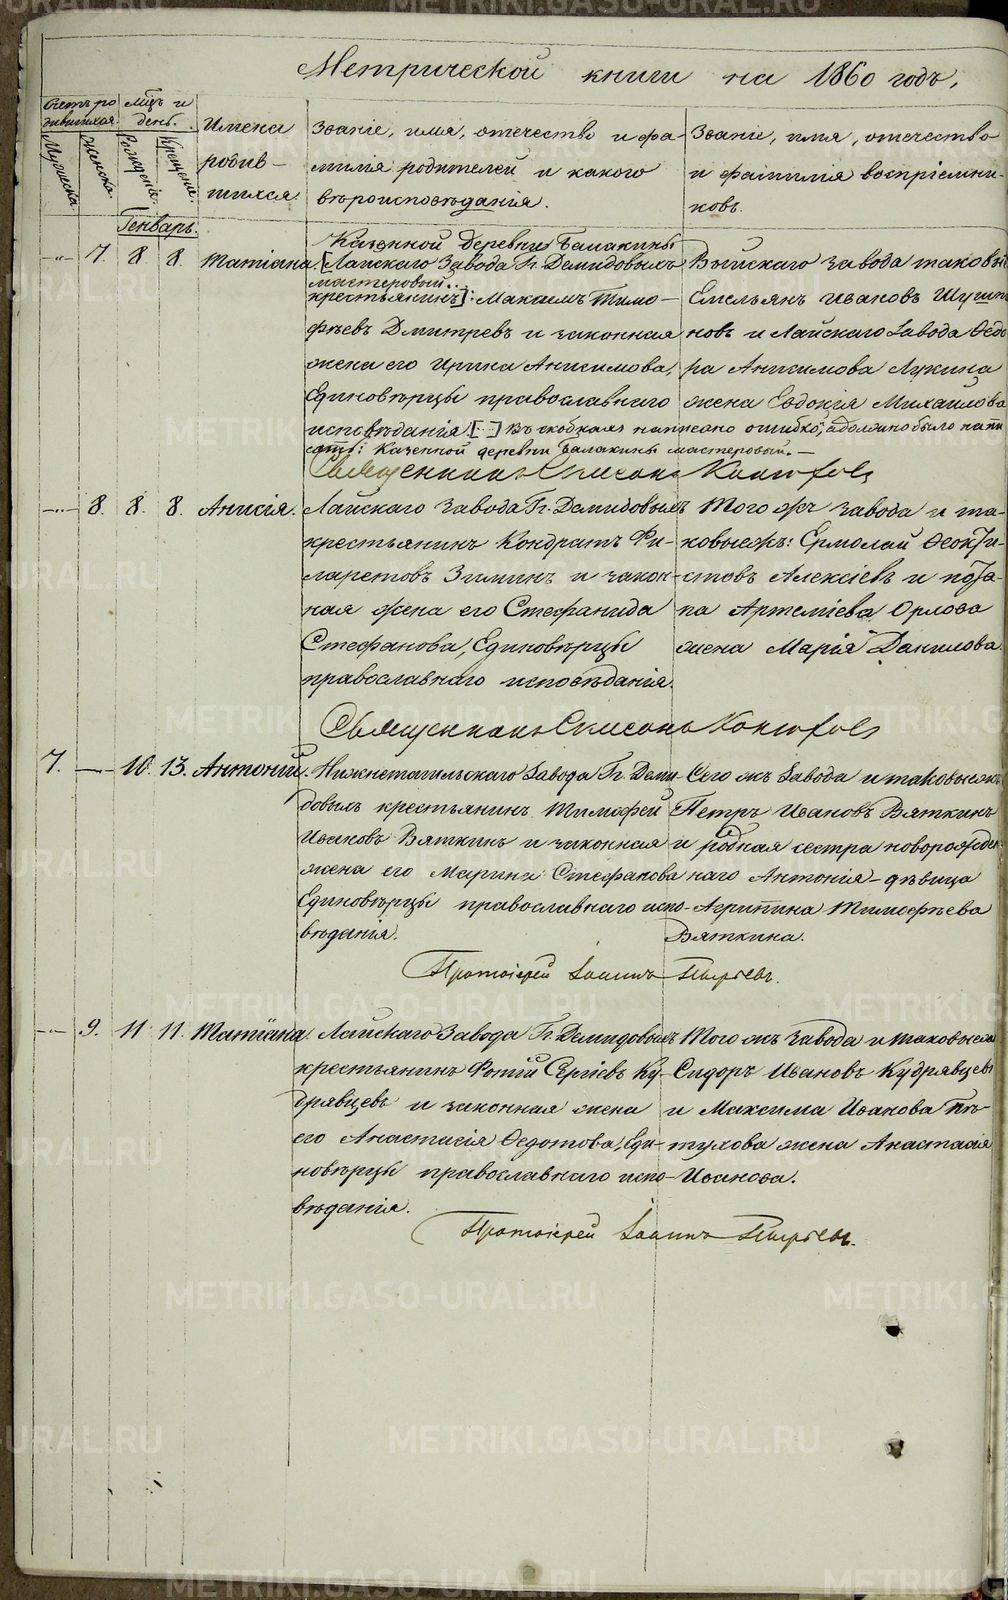 Метрической книги на 1860 годъ.
Счетъ ро
дившихся.
Мцъ и
день.
Мужеска.
Женска.
Рожденія.
Крещенія.
Имена
родив-
шихся.
Званіе, имя, отечество и фа-
милія родителей и какого
вѣроисповѣданія.
Званіе, имя, отечество
и фамилія воспріемни-
ковъ.
Генварь.
7. 8. 8. Татіана.
Казенной деревни Балакины
[Лайскаго Завода Гг. Демидовыхъ
мастеровый
крестьянинъ]: Максимъ Тимо-
фѣевъ Дмитревъ и законная
жена его Ирина Анисимова,
Единовѣрцы православнаго
исповѣданія. [...] Въ скобкахъ написано ошибкою, а должно было напи
сать: Казенной деревни Балакины мастеровый.
Выйскаго завода таковый
Емельянъ Ивановъ
новъ и Лайскаго Завода Ѳедо
ра Анисимова Лукина
жена Евдокія Михайлова
Священникъ Симеонъ
8. 8. 8. Анисія.
Лайскаго Завода Гг. Демидовыхъ
крестьянинъ Кондратъ Фи-
ларетовъ Зиминъ и закон-
ная жена его Стефанида
Стефанова, Единовѣрцы
православнаго исповѣданія.
Того жъ завода и та-
ковыежъ: Ермолай Ѳеокти-
стовъ Алексіевъ и Пота-
па Артеміева Орлова
жена Марія Данилова.
Священникъ Симеонъ
7. 10. 13. Антоній.
Нижнетагильскаго Завода Гг. Деми-
довыхъ крестьянинъ Тимофей
Ивановъ Вяткинъ и законная
жена его Марина Стефанова
Единовѣрцы православнаго испо-
вѣданія.
Сего жъ Завода и таковыежъ
Петръ Ивановъ Вяткинъ
и родная сестра новорожден
наго Антонія - дѣвица
Агрипина Тимофѣева
Вяткина.
Протоіерей Іоаннъ Пырьевъ.
9. 11. 11. Татіана.
Лайскаго Завода Гг. Демидовыхъ
крестьянинъ Фотій Сергіевъ Ку-
дрявцевъ и законная жена
его Анастасія Ѳедотова, Еди-
новѣрцы православнаго испо-
вѣданія.
Того жъ завода и таковыежъ
Сидоръ Ивановъ Кудрявцевъ
и Максима Иванова Пѣ-
тухова жена Анастасія
Иванова.
Протоіерей Іоаннъ Пырьевъ.
METRIKI.GASO-URAL.RU